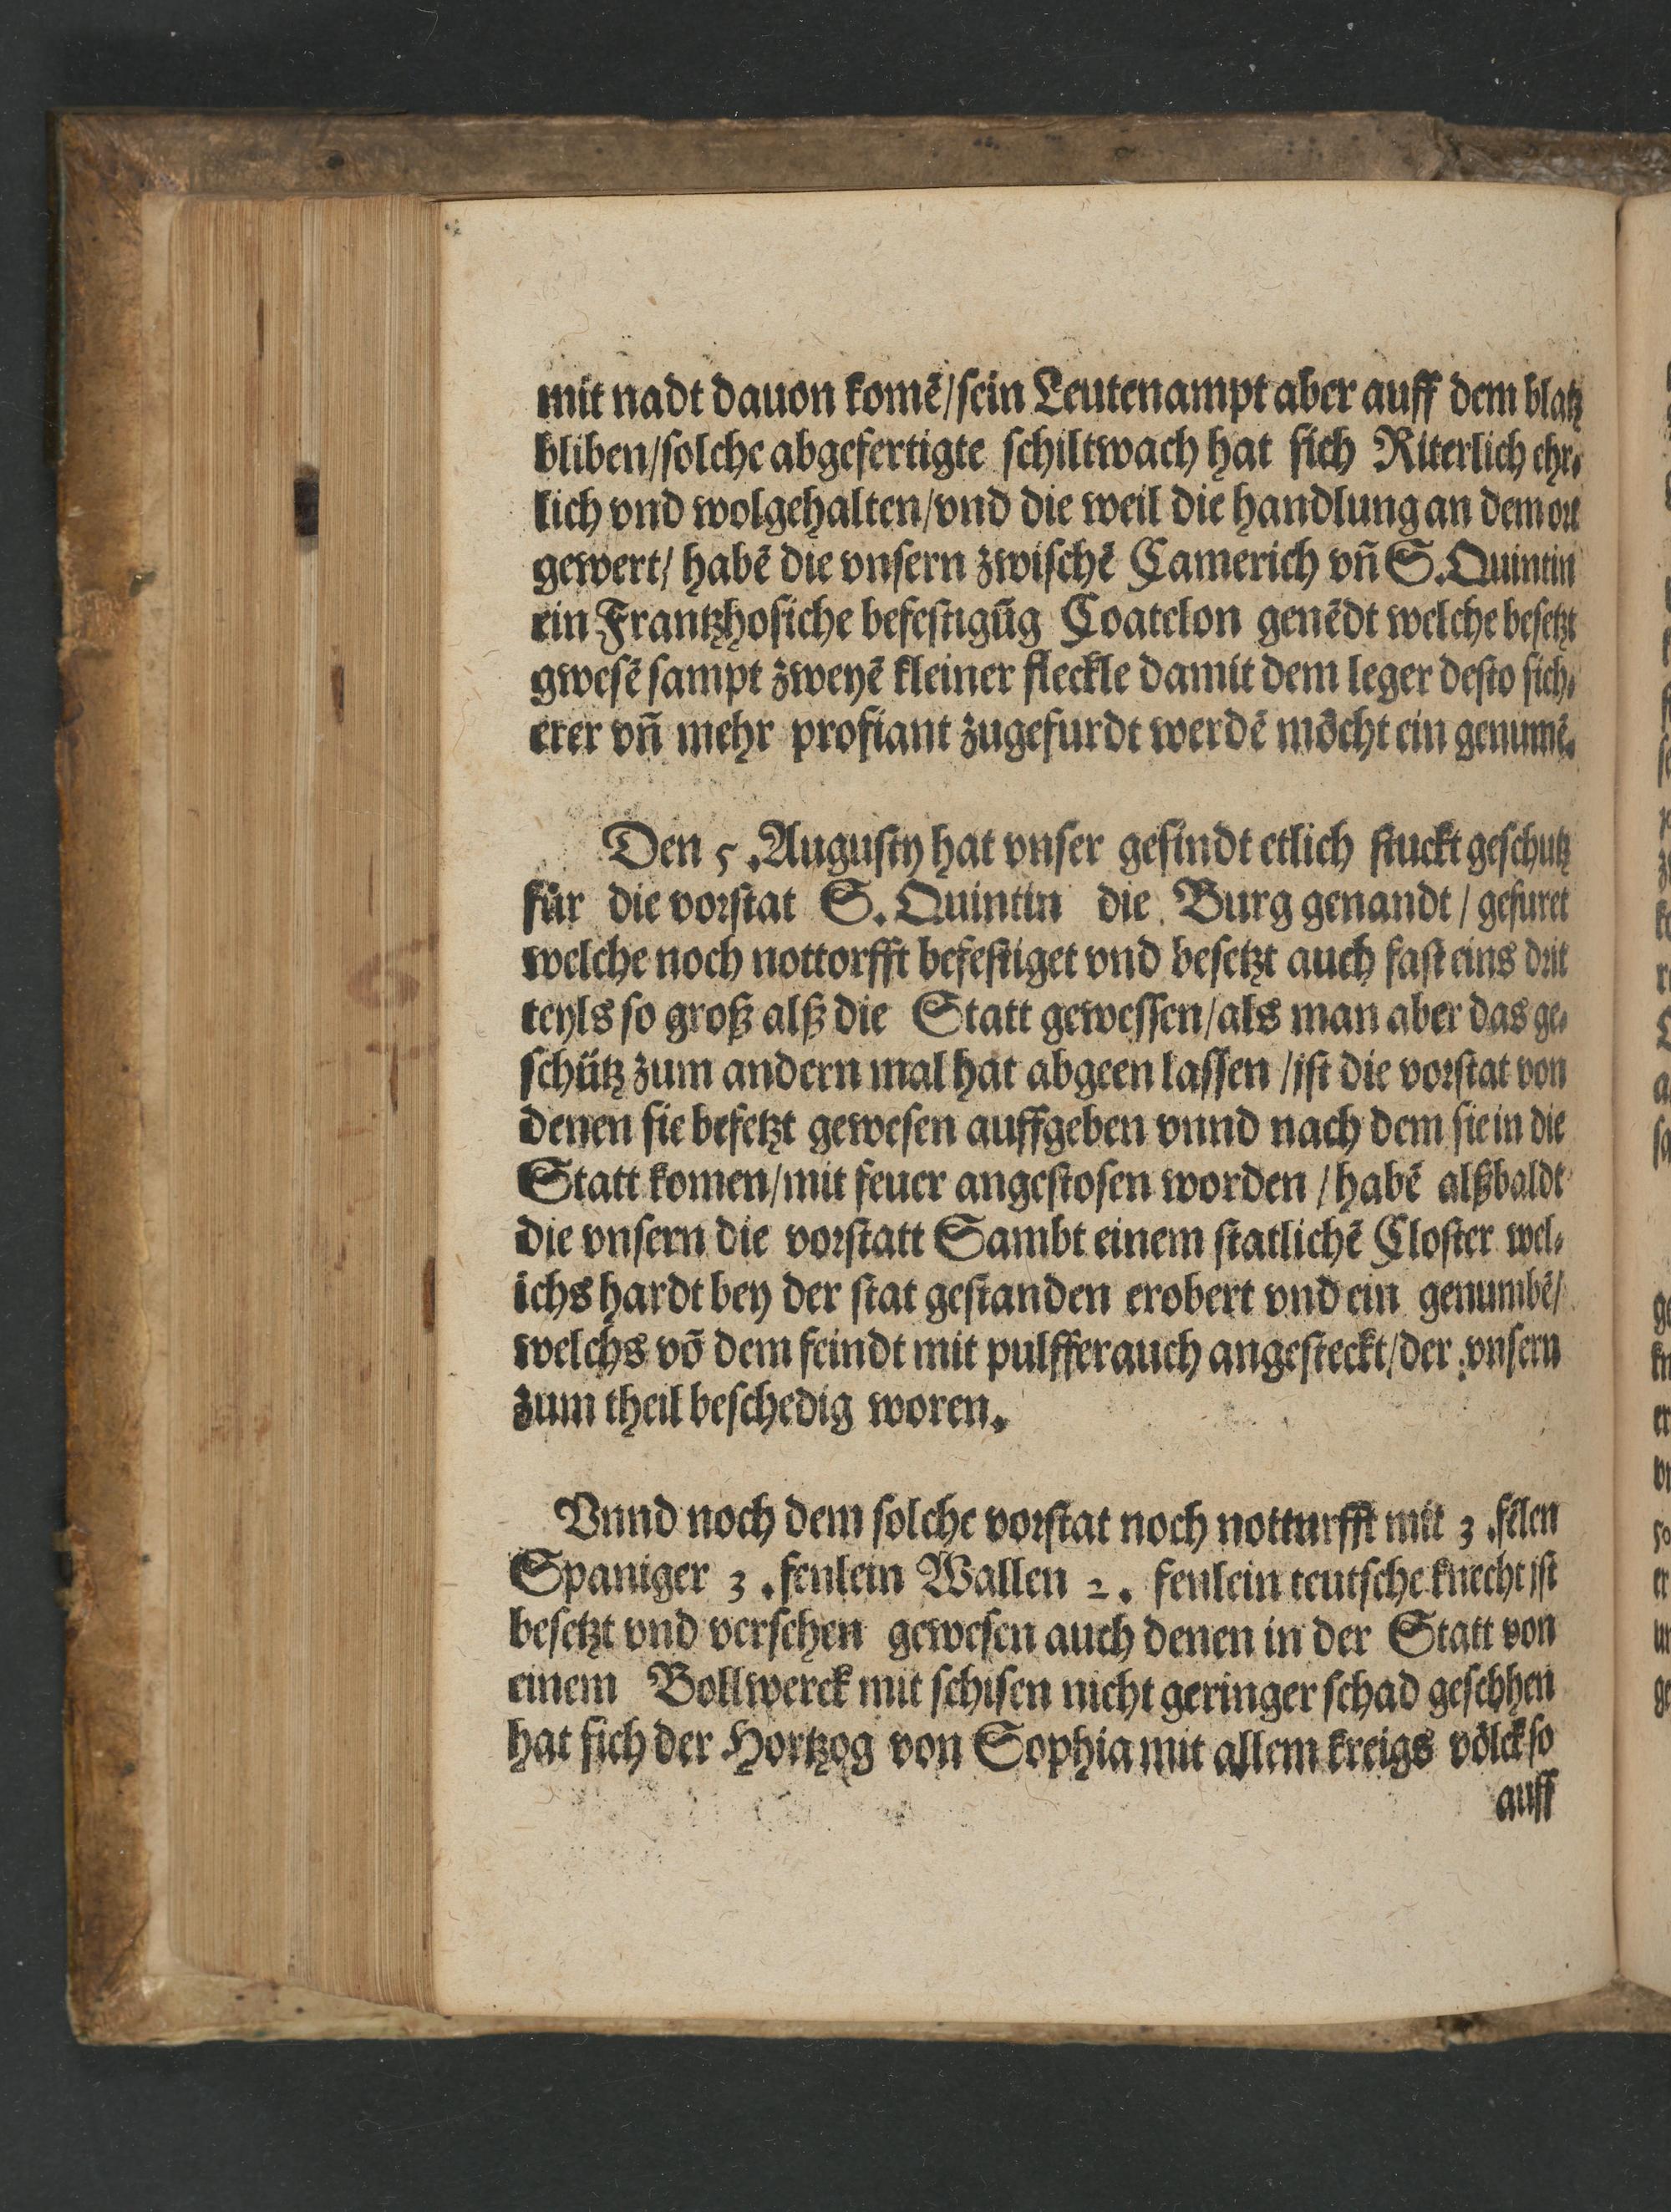 mit nadt dauon komē/sein Leutenampt aber auff dem blatz
bliben/solche abgefertigte schiltwach hat sich Riterlich ehr⸗
lich vnd wolgehalten/vnd die weil die handlung an dem ort
gewert/ habē die vnsern zwischē Camerich vn̄ S. Quintin
ein Frantzhosiche befestigūg Coatelon genēdt welche besetzt
gwesē sampt zweyē kleiner fleckle damit dem leger desto sich⸗
erer vn̄ mehr profiant zugefurdt werdē möcht ein genumē.
Den 5. Augusty hat vnser gesindt etlich stuckt geschutz
für die vorstat S. Quintin die Burg genandt / gefuret
welche noch nottorfft befestiget vnd besetzt auch fast eins drit
teyls so groß alß die Statt gewessen/als man aber das ge⸗
schütz zum andern mal hat abgeen lassen /ist die vorstat von
denen sie besetzt gewesen auffgeben vnnd nach dem sie in die
Statt komen/mit feuer angestosen worden / habē alßbaldt
die vnsern die vorstatt Sambt einem statlichē Closter wel⸗
ichs hardt bey der stat gestanden erobert vnd ein genumbē/
welchs vō dem feindt mit pulffer auch angesteckt/der vnsern
zum theil beschedig woren.
Vnnd noch dem solche vorstat noch notturfft mit 3. fēlen
Spaniger 3. fenlein Wallen 2. fenlein teutsche knecht ist
besetzt vnd versehen gewesen auch denen in der Statt von
einem Bollwerck mit schisen nicht geringer schad geschhen
hat sich der Hortzog von Sophia mit allem kreigs völck so
auff